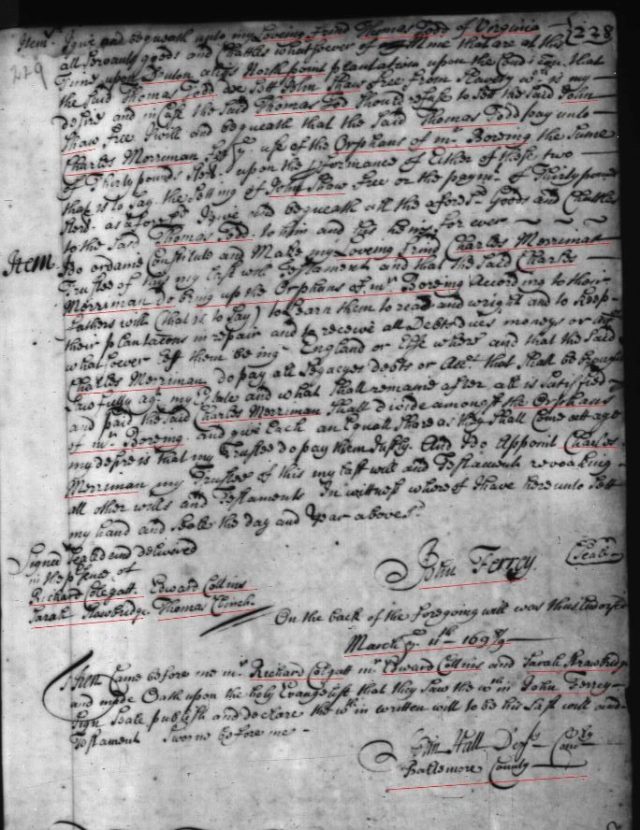 Item I give and bequeath unto my Loveing friend Thomas Todd of Virginia 228
229 all servants goods and Chattles whatsoever of mine that are at this
Time upon Pattapsco North point plantation upon the Condition that
the said Thomas Todd do sett John Shaw free from Slavery wch is my
desire and in Case the said Thomas Todd should refuse to sett the said John
Shaw free I will and bequeath that the said Thomas Todd pay unto
Charles Merriman for ye use of the Orphans of mr Boreing the Summe
of Thirty pounds Sterl. upon the performance of Either of these two
that is to say the Setting of John Shaw free or the paymt of Thirty pounds
Sterl. as aforesd I give and bequeath all the aforesd Goods and Chattles
to the said Thomas Todd to him and his heires for ever
Item I do ordaine Constitute and Make my Loveing friend Charles Merriman
Trustee of this my last will & Testament and that the said Charles
Merriman do bring up the Orphans of mr Boreing According to their
fathers will (that is to say) to learn them to read and wright and to keep
their plantations in repair and to receive all Debts dues money or
whatsoever off them being England or Else where and that the said
Charles Merriman do pay all Legacyes debts or Acct. that shall be brought
Lawfully agt my Estate and what shall remaine after all is Satisfied
and paid the said Charles Merriman shall divide amongst the Orphans
of mr Boreing and give Each an Equall Share as they shall Come att age
my desire is that my Trustee do pay them Justly. And I do Appoint Charles
Merriman my Trustee of this my last will and Testament revoaking
all other wills and Testaments In witness whereof I have here unto Sett
my hand and Seale the day and year above sd
Signed Sealed and delivered
in the presence of John Ferrey. (Seale)
Richard Colegatt. Edward Collins
Sarah Strawbridge. Thomas Clinch.
On the back of the foregoing will was thus Endorsed
March ye 11th 1698/9
Then Came before me mr Richard Colegatt mr Edward Collins and Sarah Strawbridge
and made Oath upon the holy Evangelist that they Saw the wthin John Ferrey
Sign Seale publish and declare the wthin written will to be his last will and
Testament Sworne before me
John Hall
Baltemore County